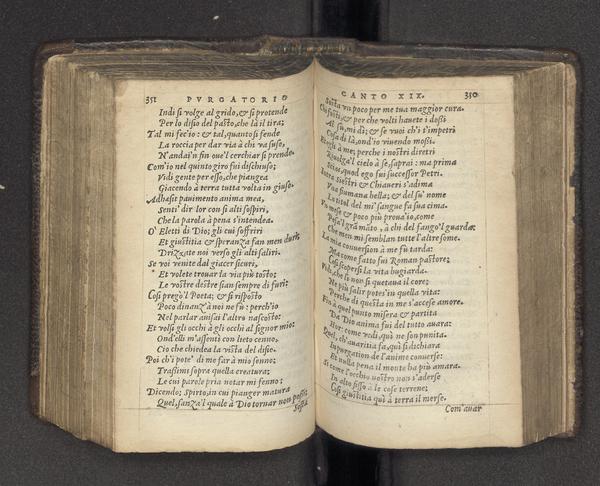 351 PVRGATORIO
Indi si volge al grido, & si protende
Per lo disio del pasto, che là il tira;
Tal mi fec'io: & tal, quanto si fende
La roccia per dar via à chi va suso,
N'andai'n fin oue'l cerchiar si prende.
Com'io nel quinto giro fui dischiuso;
Vidi gente per esso, che piangea
Giacendo à terra tutta volta in giuso.
Adhæsit pauimento anima mea,
Senti' dir lor con sì alti sospiri,
Che la parola à pena s'intendea.
O' Eletti di Dio; gli cui soffriri
Et giustitia & speranza fan men duri;
Drizzate noi verso gli alti saliri.
Se voi venite dal giacer sicuri,
Et volete trouar la via più tosto;
Le vostre destre sian sempre di furi:
Così pregò'l Poeta; & sì risposto
Poco dinanzi à noi ne fu: perch'io
Nel parlar auisai l'altro nascosto:
Et volsi gli occhi à gli occhi al signor mio:
Ond'elli m'assentì con lieto cenno,
Ciò che chiedea la vista del disio.
Poi ch'i pote' di me far à mio senno;
Trassimi sopra quella creatura;
Le cui parole pria notar mi fenno;
Dicendo: Spirto, in cui pianger matura
Quel, sanza'l quale à Dio tornar non possi;
Sosta
CANTO XIX. 350
Sosta vn poco per me tua maggior cura.
Chi fosti, & per che volti hauete i dossi
Al sù, mi dì; & se vuoi ch'i t'impetri
Cosa di là, ond'io viuendo mossi.
Et egli à me; perche i nostri diretri
Riuolga'l cielo à se, saprai: ma prima
Scias, quod ego fui successor Petri.
Intra Siestri & Chiaueri s'adima
Vna fiumana bella; & del su' nome
Lo titol del mi' sangue fa sua cima.
Vn mese & poco più proua'io, come
Pesa'l grã mãto, à chi del fango'l guarda:
Che men mi semblan tutte l'altre some.
La mia conuersion à me fù tarda:
Ma come fatto fui Roman pastore;
Così scopersi la vita bugiarda.
Vidi, che lì non si quetaua il core;
Ne più salir potes' in quella vita:
Perche di questa in me s'accese amore.
Fin à quel punto misera & partita
Da Dio anima fui del tutto auara:
Hor: come vedi, quì ne son punita.
Quel, ch'auaritia fa, quì si dichiara
In purgation de l'anime conuerse:
Et nulla pena il monte ha più amara.
Si come l'occhio nostro non s'aderse
In alto fisso à le cose terrene;
Così giustitia quì à terra il merse.
Com'auar